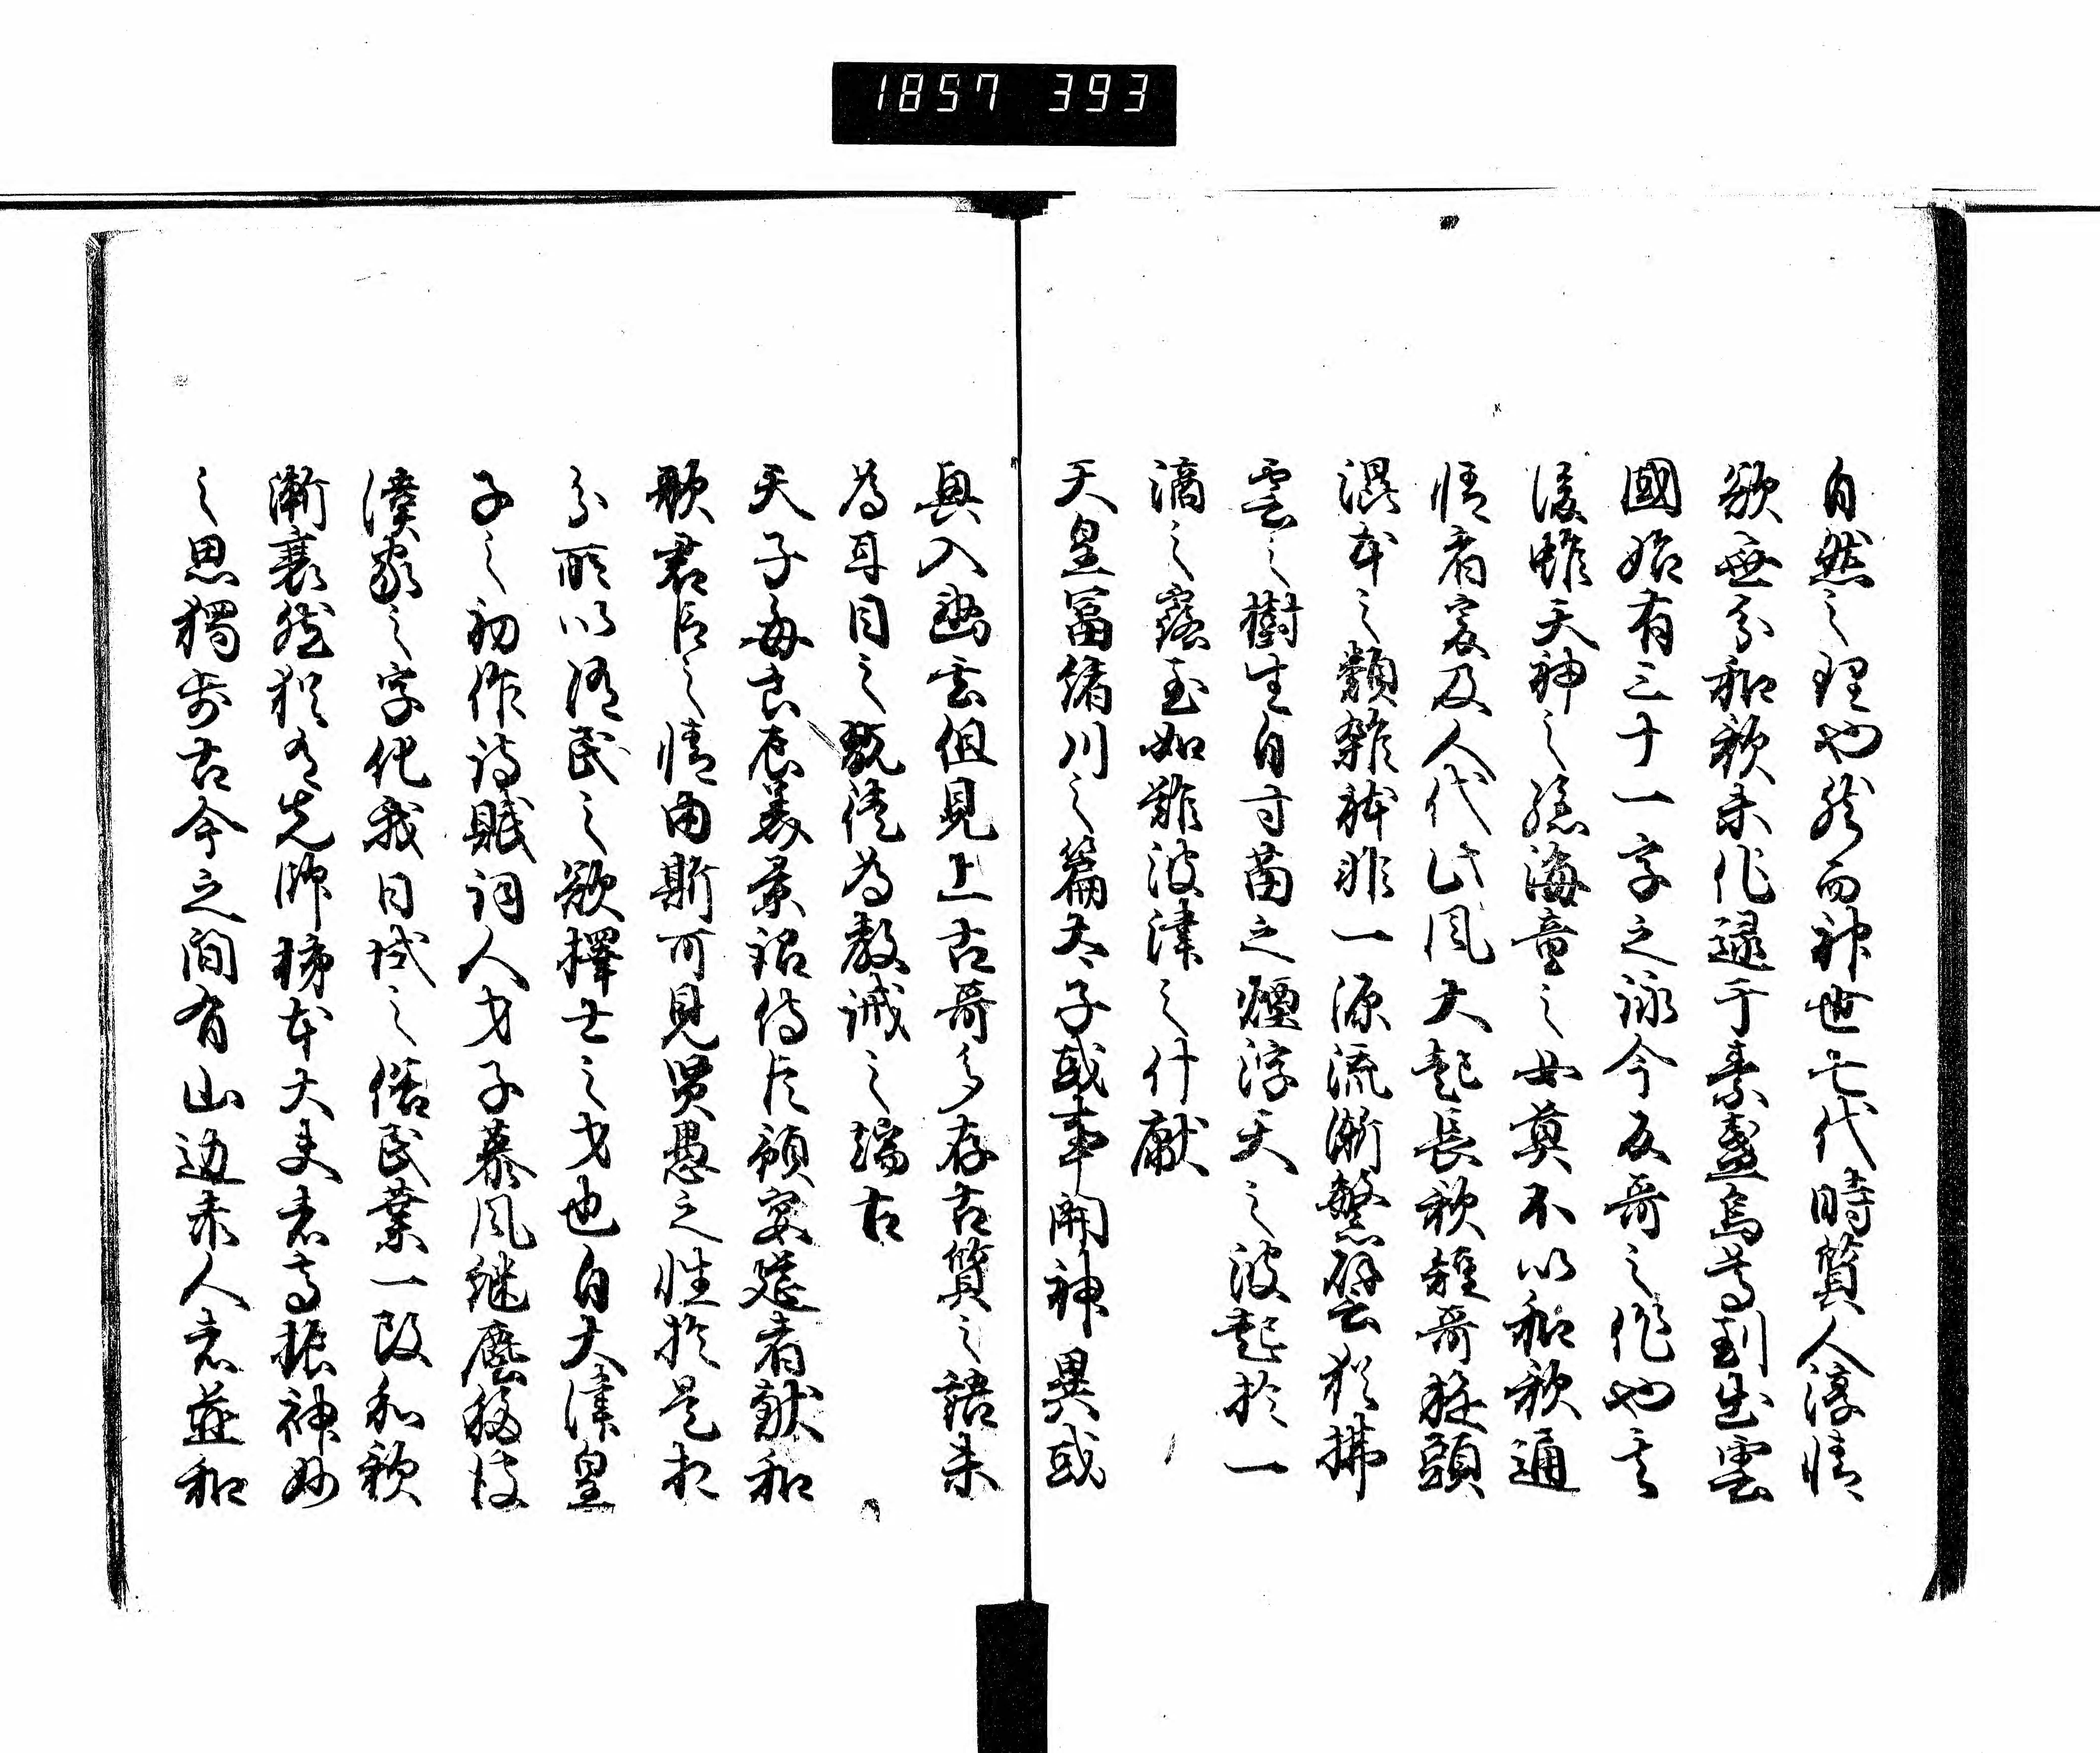 1857 393
自然之理也然而神世七代時質人淳情
欲無分和歌未作逮于素盞烏尊到出雲
國始有三十一字之詠今反哥之作也其
後雖天神之孫海童之女莫不以和歌通
情者爰及人代此風大起長歌短哥旋頭
混本之類雜体非一源流漸繁譬猶拂
雲之樹生自寸苗之煙浮天之波起於一
滴之露至如難波津之什獻
天皇冨緒川之篇太子或事開神異或
興入幽玄但見上古哥多存古質之語未
為耳目之翫徒為教誡之端古
天子毎良辰美景詔侍臣預宴莚者献和
歌君臣之情由斯可見賢愚之性於是相
分所以随民之欲擇士之才也自大津皇
子之初作詩賦詞人才子慕風継塵移彼
漢家之字化我日域之俗民業一改和歌
漸衰然猶有先師柿本大夫者高振神妙
之思獨歩古今之間有山邊赤人者並和